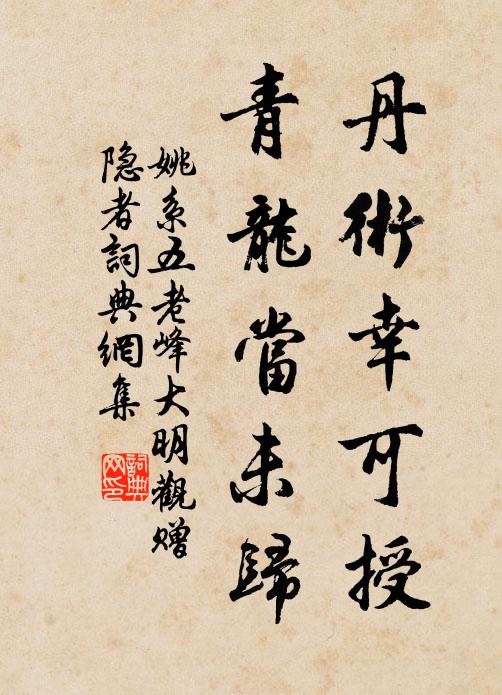 丹術幸可授
青龍當未歸
姚系五老峰大明觀赠
隐者詞典網集
詞典网印